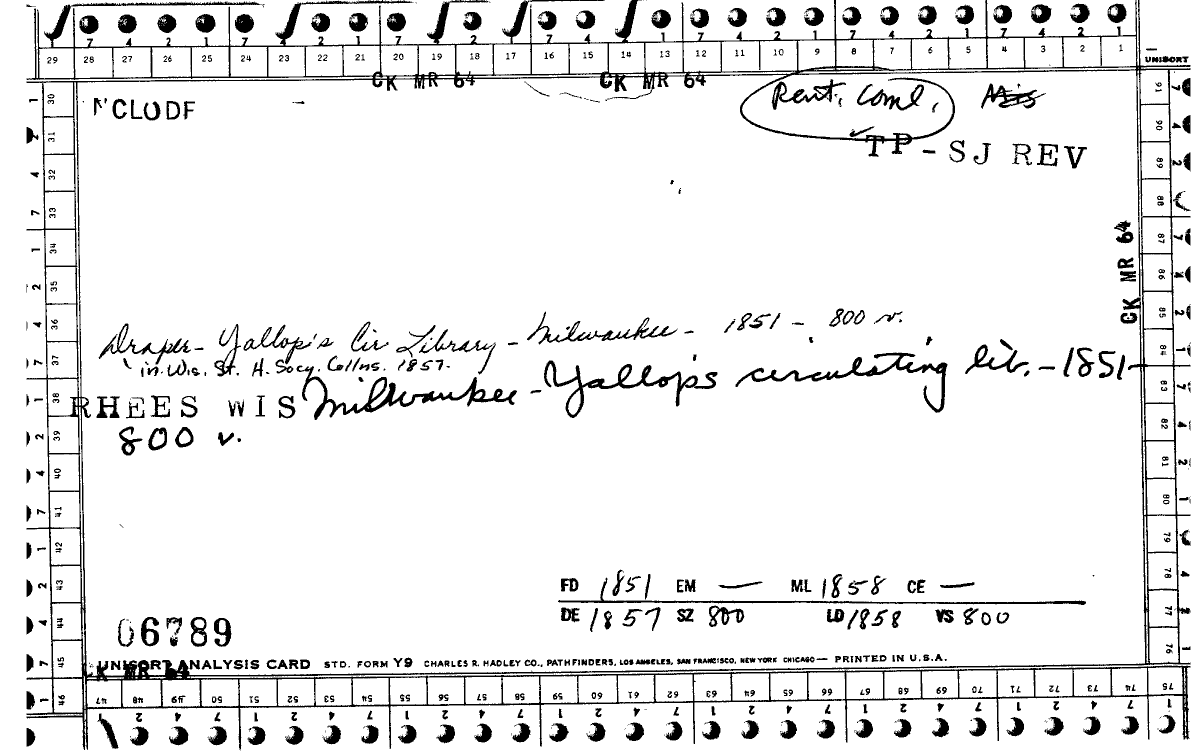 7 4 2 1 7 4 2 1 7 4 2 1 7 4 2 1 7 4 2 1 7 4 2 1
29 28 27 26 25 24 23 22 21 20 19 18 17 16 15 14 13 12 11 10 9 8 7 6 5 4 3 2 1 UNISORT
CK MR 64 CK MR 64
NCLODF
Rent. Coml. Mis
TP-SJ REV
CK MR 64
Draper - Yallop's Cir Library - Milwaukee - 1851 - 800 v.
in Wis. St. H. Socy. Collns. 1857.
RHEES WIS Milwaukee - Yallop's circulating lib. - 1851 -
800 v.
FD 1851 EM — ML 1858 CE —
DE 1857 SZ 800 LD 1858 VS 800
06789
UNISORT ANALYSIS CARD STD. FORM Y9 CHARLES R. HADLEY CO., PATHFINDERS, LOS ANGELES, SAN FRANCISCO, NEW YORK CHICAGO — PRINTED IN U.S.A.
CK MR 64
30 31 32 33 34 35 36 37 38 39 40 41 42 43 44 45 46
91 90 89 88 87 86 85 84 83 82 81 80 79 78 77 76
47 48 49 50 51 52 53 54 55 56 57 58 59 60 61 62 63 64 65 66 67 68 69 70 71 72 73 74 75